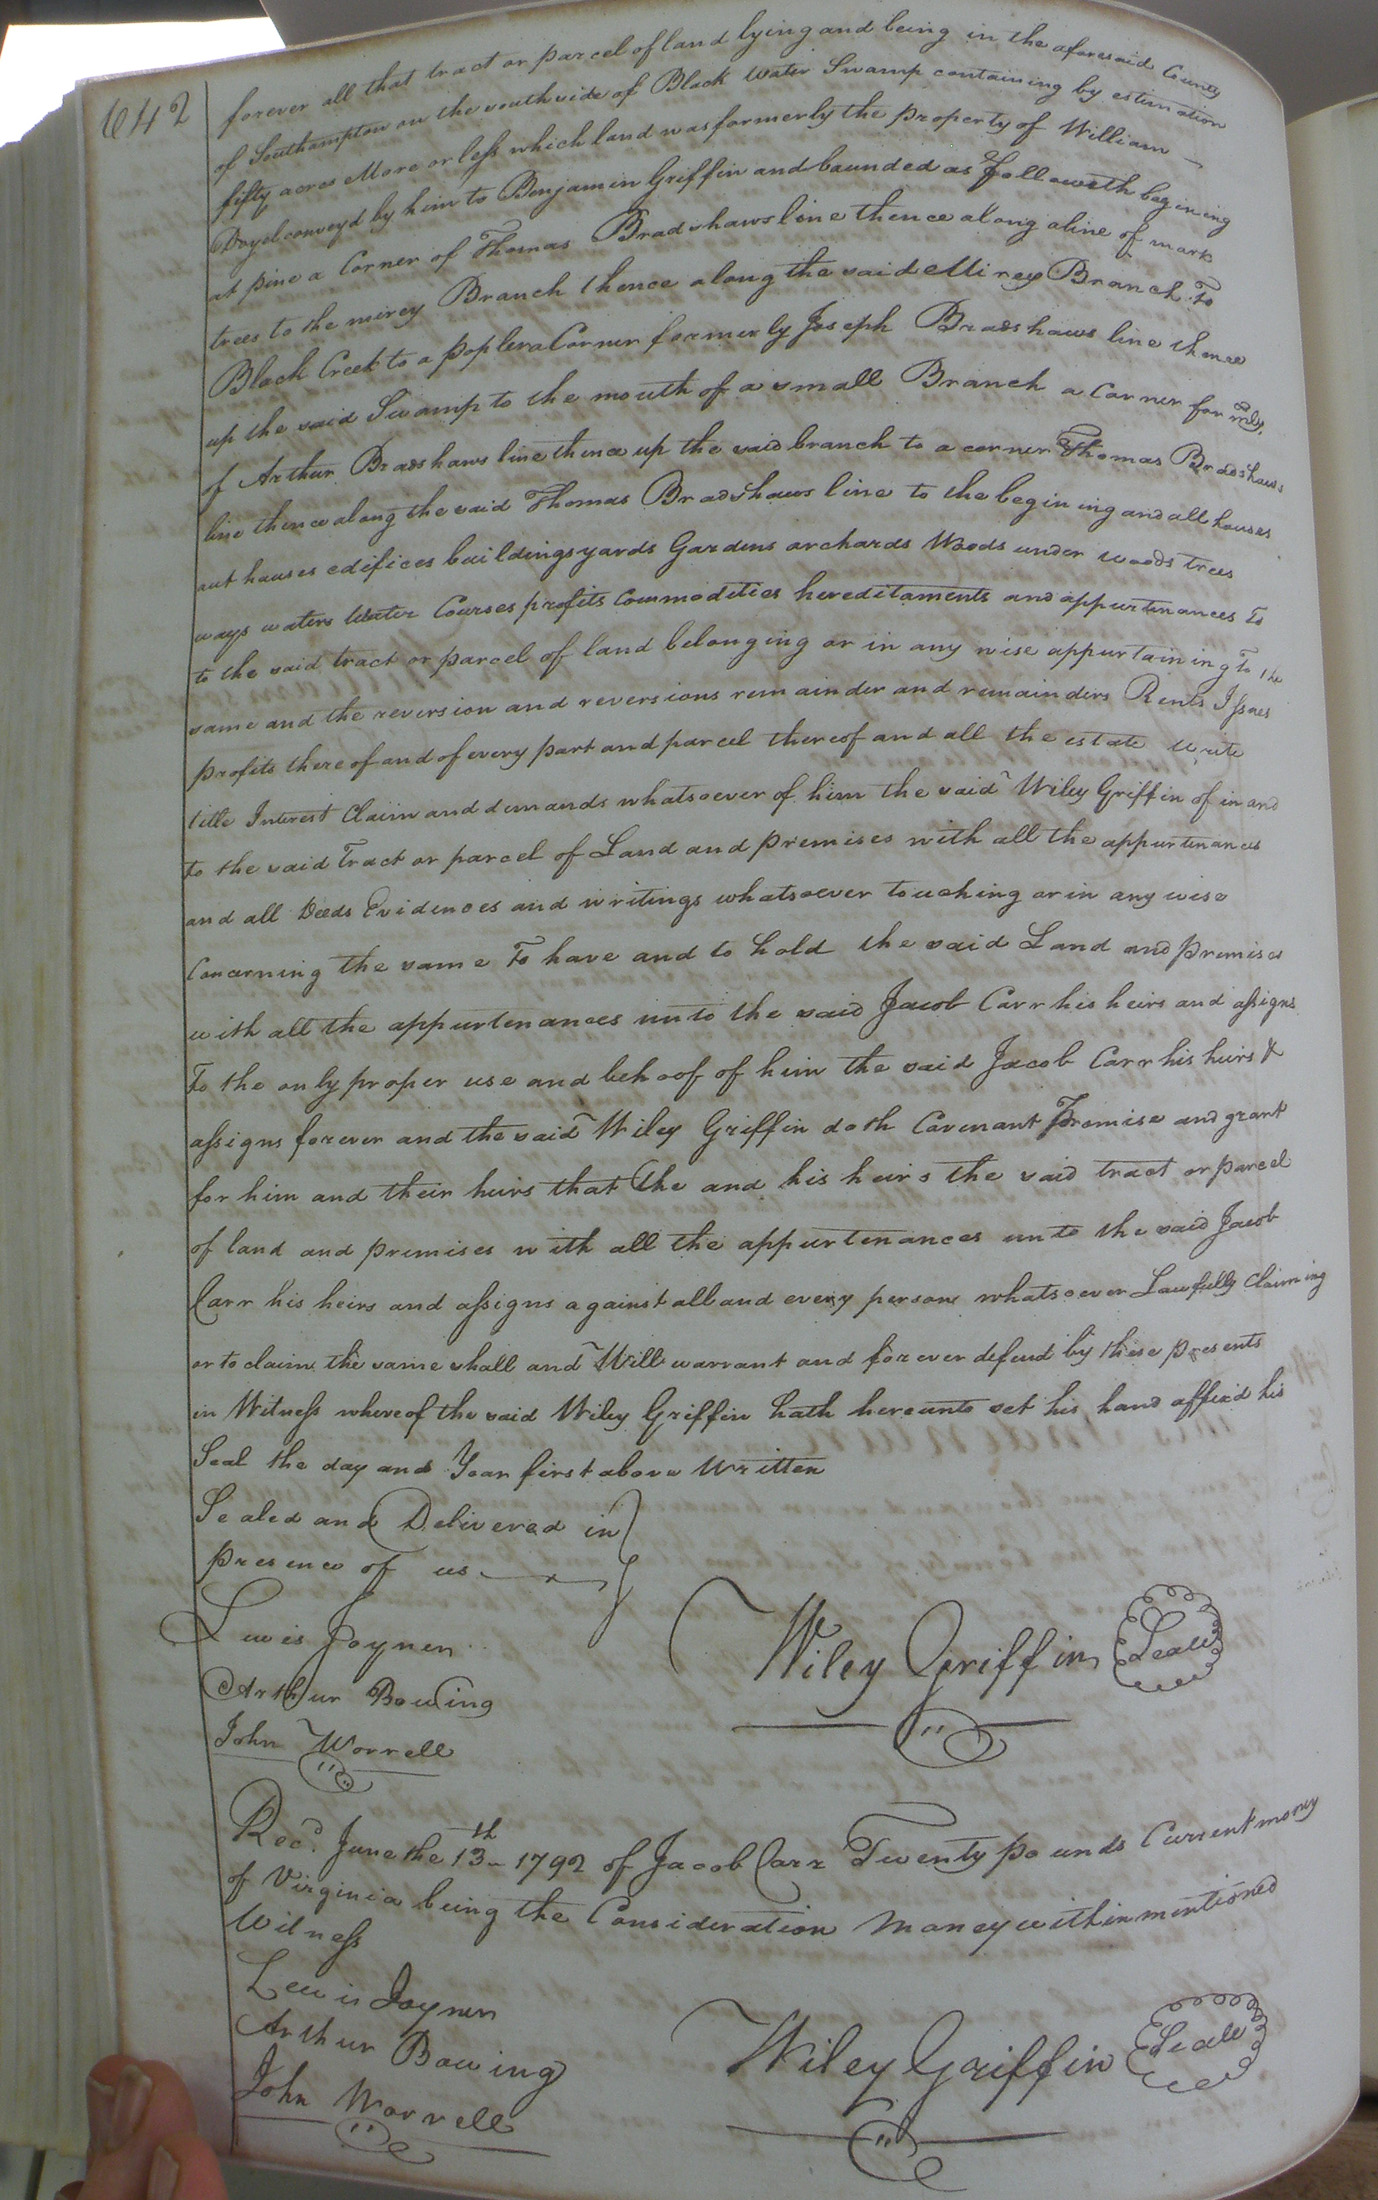 642
forever all that tract or parcel of land lying and being in the aforesaid County
of Southampton on the south side of Black Water Swamp containing by estimation
fifty acres More or less which land was formerly the property of William
Doyel conveyd by him to Benjamin Griffin and baunded as followeth begining
at pine a Corner of Thomas Bradshaws line thence along a line of mark
trees to the mirey Branch thence along the said Mirey Branch To
Black Creek to a poplera Corner formerly Joseph Bradshaws line thence
up the said Swamp to the mouth of a small Branch a Corner formrly
of Arthur Bradshaws line thence up the said branch to a corner Thomas Bradshaws
line thence along the said Thomas Bradshaws line to the begining and all houses
out houses edifices buildings yards Gardens orchards Woods under woods trees
ways waters Water Courses profits Commodities hereditaments and appurtenances To
to the said tract or parcel of land belonging or in any wise appurtaining To the
same and the reversion and reversions remainder and remainders Rents Issues
profits thereof and of every part and parcel thereof and all the estate write
title Interest Claim and demands whatsoever of him the said Wiley Griffin of in and
to the said Tract or parcel of Land and premises with all the appurtenances
and all Deeds Evidences and writings whatsoever touching or in any wise
Concerning the same To have and to hold the said Land and premises
with all the appurtenances unto the said Jacob Carr his heirs and assigns
To the only proper use and behoof of him the said Jacob Carr his heirs &
assigns forever and the said Wiley Griffin doth Covenant Promise and grant
for him and their heirs that the and his heirs the said tract or parcel
of land and premises with all the appurtenances unto the said Jacob
Carr his heirs and assigns against all and every person whatsoever Lawfully Claiming
or to claim the same shall and Will warrant and forever defend by these presents
in Witness whereof the said Wiley Griffin hath hereunto set his hand affixd his
Seal the day and Year first above Written
Sealed and Delivered in
presence of us
Lewis Joyner
Arthur Bowing
John Worrell
Wiley Griffin Seal
Recd. June the 13th 1792 of Jacob Carr Twenty pounds Current mony
of Virginia being the Consideration Money within mentioned
Witness
Lewis Joyner
Arthur Bowing
John Worrell
Wiley Griffin Seal